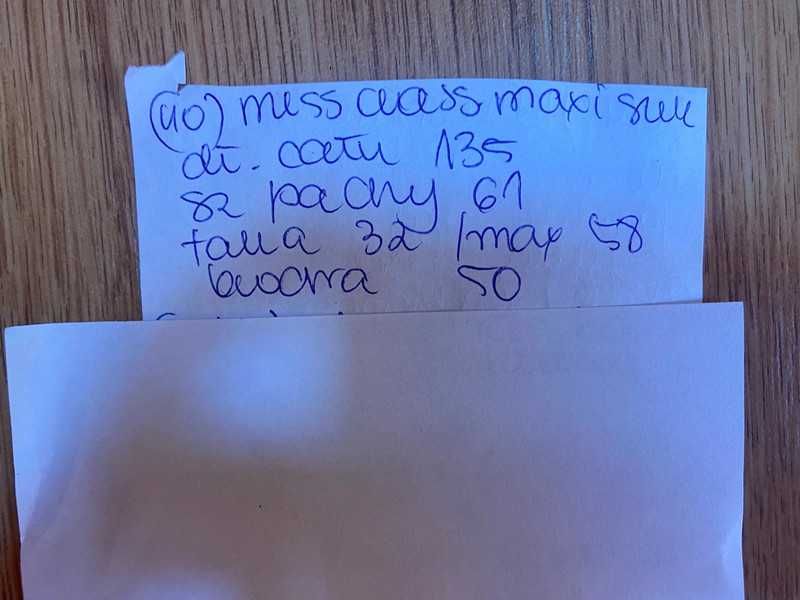 (40) miss class maxi suk
dł. całk 135
sz pachy 61
talia 32 /max 58
biodra 50